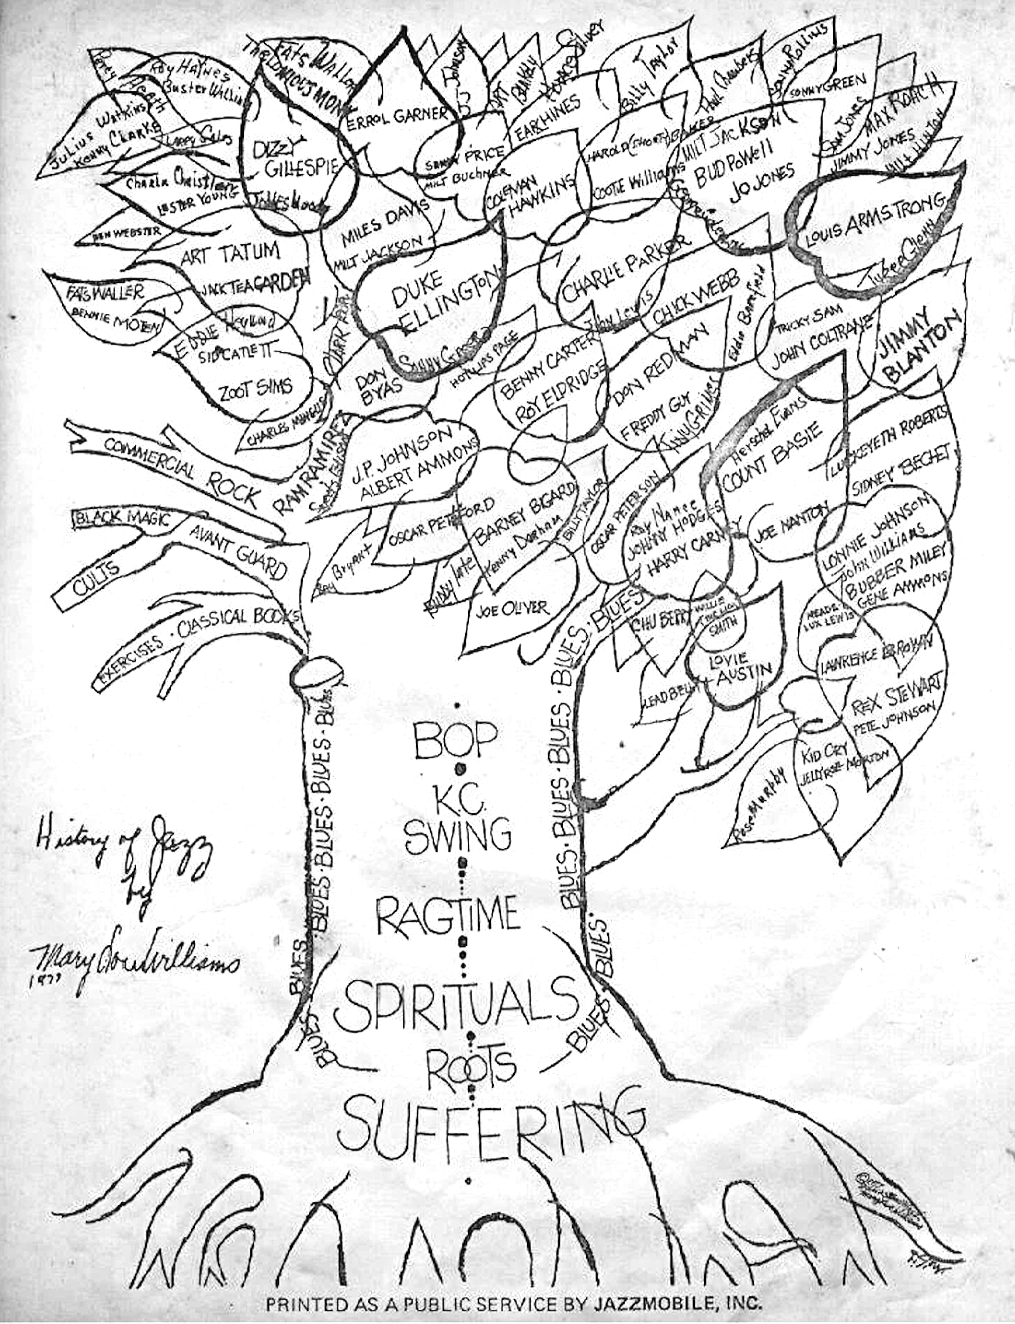 Percy Heath
Roy Haynes
Buster Williams
Julius Watkins
Kenny Clarke
Larry Gales
Charlie Christian
LESTER YOUNG
BEN WEBSTER
FATS Waller
THELONIOUS MONK
DIZZY
GILLESPIE
James Moody
ERROL GARNER
J.J. Johnson
ART BLAKEY
Horace Silver
EARCHINES
SONNY PRICE
MILT BUCHNER
COLEMAN
HAWKINS
Billy Taylor
Paul Chambers
SONNY Rollins
SONNY GREEN
HAROLD (SHORTY) BAKER
COOTIE Williams
MILT JACKSON
BUD POWELL
JO JONES
SAM JONES
MAX ROACH
JIMMY JONES
MILT HINTON
LOUIS ARMSTRONG
MILES DAVIS
MILT JACKSON
ART TATUM
JACK TEAGARDEN
FATS WALLER
BENNIE MOTEN
EDDIE Heywood
SID CATLETT
ZOOT SIMS
CHARLES MINGUS
DUKE
ELLINGTON
Sonny Greer
CHARLIE PARKER
CHICK WEBB
TRICKY SAM
JOHN COLTRANE
JIMMY
BLANTON
DON
BYAS
HOT LIPS PAGE
BENNY CARTER
ROY ELDRIDGE
DON REDMAN
FREDDY GUY
RAM RAMIREZ
J.P. JOHNSON
ALBERT AMMONS
Herschel Evans
COUNT BASIE
LUCKEYETH ROBERTS
SIDNEY BECHET
COMMERCIAL ROCK
BLACK MAGIC
AVANT GUARD
CULTS
EXERCISES · CLASSICAL BOOKS
OSCAR PETIFORD
BARNEY BIGARD
Kenny Dorham
BILLY TAYLOR
OSCAR PETERSON
Ray Nance
JOHNNY HODGES
HARRY CARNEY
JOE NANTON
LONNIE JOHNSON
John Williams
BUBBER MILEY
GENE AMMONS
Ray Bryant
BUDDY Tate
JOE OLIVER
CHU BERRY
WILLIE
THE LION
SMITH
MEADE
LUX LEWIS
LAWRENCE BROWN
LEAD BELLY
LOVIE
AUSTIN
REX STEWART
PETE JOHNSON
KID ORY
JELLYROLL MORTON
Rose Murphy
BLUES · BLUES · BLUES · BLUES
BLUES
BLUES
BLUES · BLUES · BLUES · BLUES · BLUES
BLUES
BLUES
BOP
K.C.
SWING
RAGTIME
SPIRITUALS
ROOTS
SUFFERING
History of Jazz
by
Mary Lou Williams
1977
PRINTED AS A PUBLIC SERVICE BY JAZZMOBILE, INC.